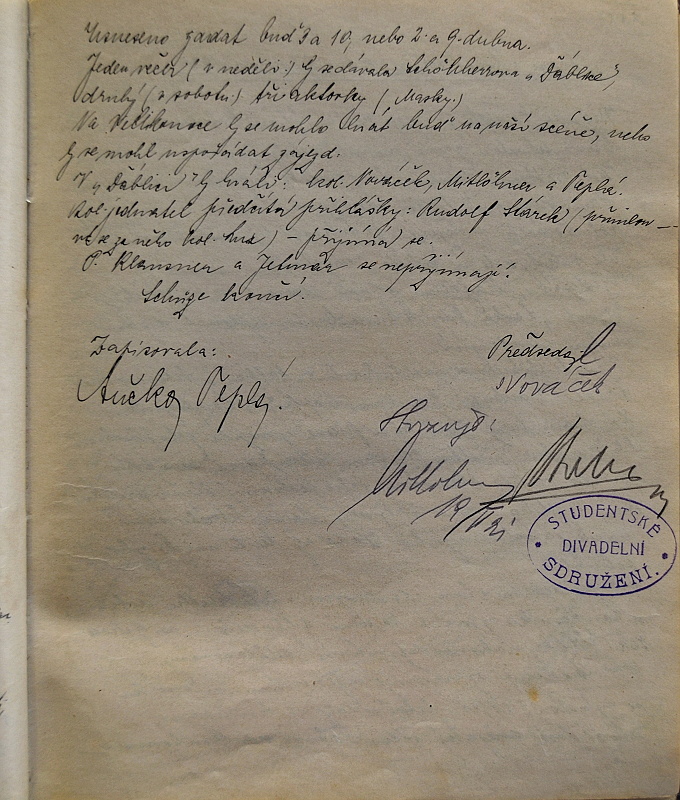 Usneseno zadat buď 3 a 10, nebo 2. a 9. dubna.
Jeden večer (v neděli) by se dávala Schönherrova „Ďáblice“,
druhý (v sobotu) tři aktovky („Masky“)
Na Velikonoce by se mohlo hrát buď na naší scéně, nebo
by se mohl uspořádat zájezd.
V „Ďáblici“ by hráli: kol. Nováček, Mitlöhner a Teplá.
Kol. jednatel předčítá přihlášky: Rudolf Stárek (přimlou-
vá se za něho kol. ) – přijímá se.
P. Klausner a Jelínek se nepřijímají.
Schůze končí.
Zapisovala:
Aučka Teplá.
Předsedal
Nováček
19/IV 21
STUDENTSKÉ
DIVADELNÍ
SDRUŽENÍ.